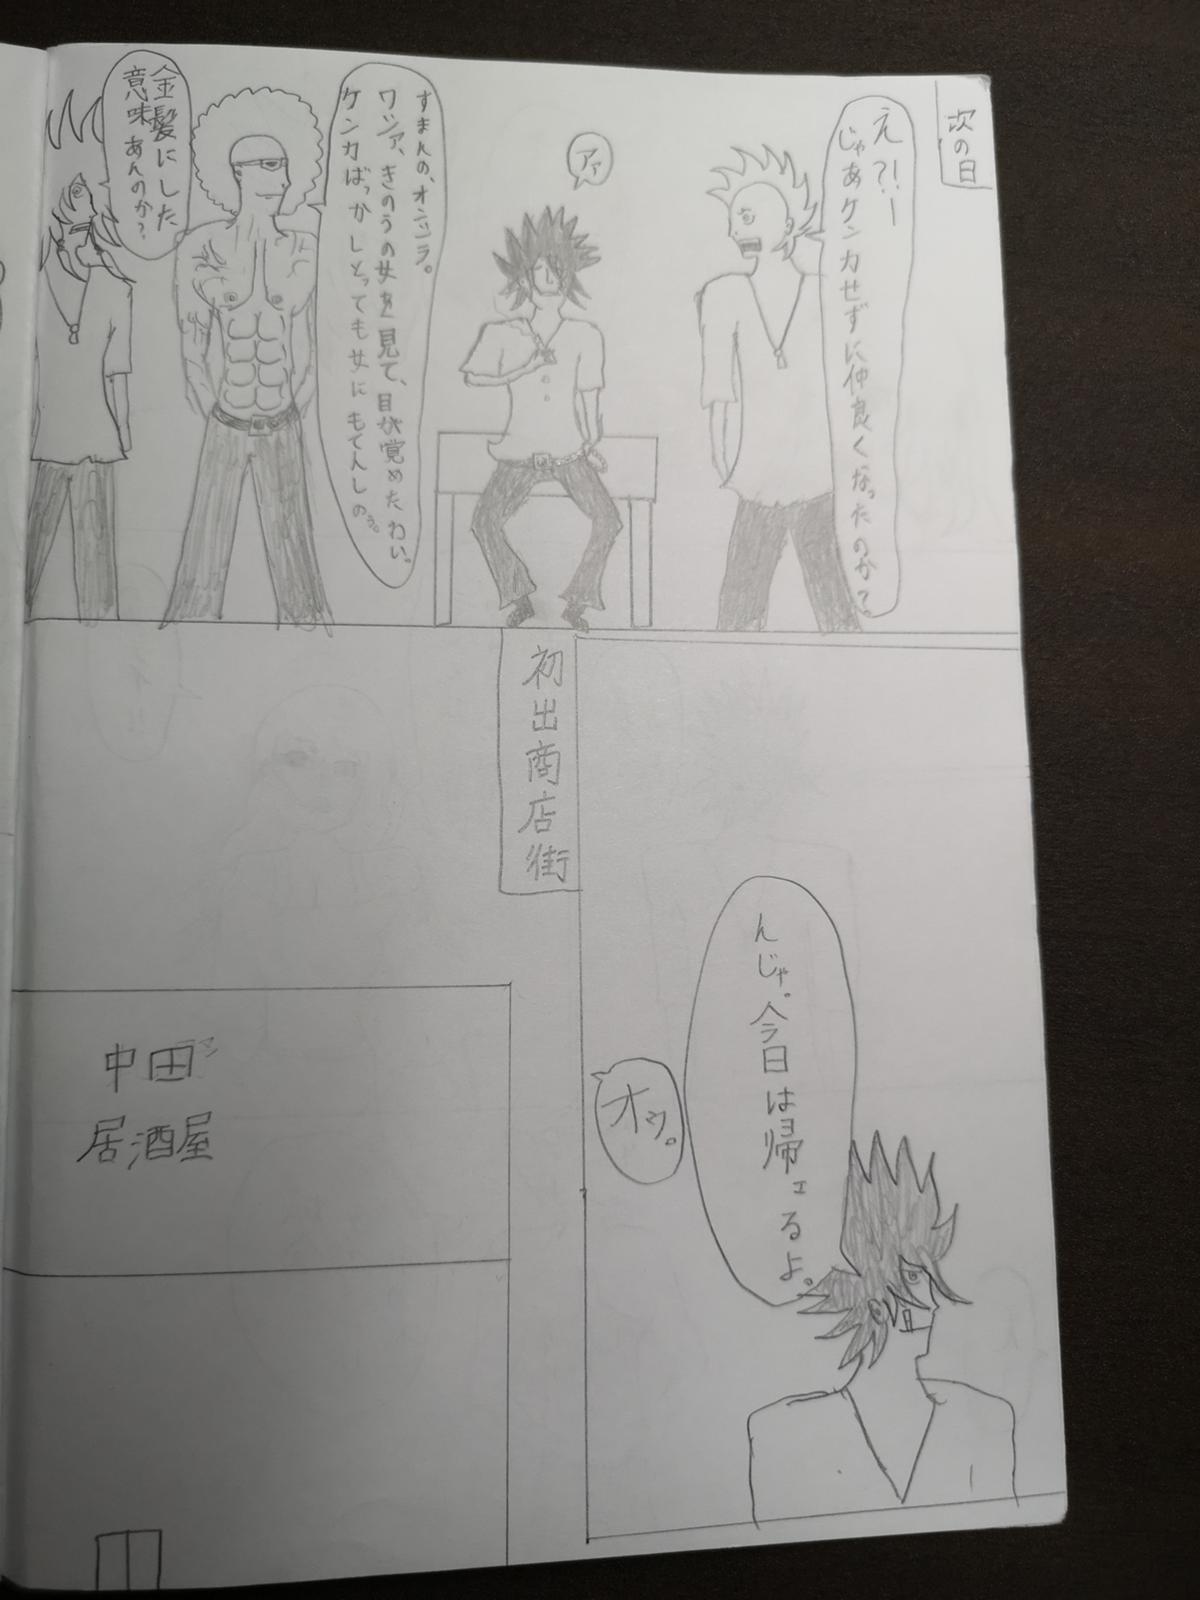 次の日
え?!ー
じゃあケンカせずに仲良くなったのか?
アァ
すまんの、オンシラ。
ワシァ、きのうの女を見て、目が覚めたわい。
ケンカばっかしとっても女にもてんしのぅ。
金髪にした
意味あんのか?
んじゃ。今日は帰ェるよ。
オゥ。
初出商店街
中田
居酒屋